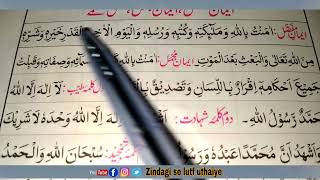 ایمان مفصل: اٰمَنْتُ بِاللّٰهِ وَمَلٰٓئِكَتِهٖ وَكُتُبِهٖ وَرُسُلِهٖ وَالْيَوْمِ الْاٰخِرِ وَالْقَدْرِ خَيْرِهٖ وَشَرِّهٖ
مِنَ اللّٰهِ تَعَالٰى وَالْبَعْثِ بَعْدَ الْمَوْتِ ایمان مجمل: بِاَسْمَآئِهٖ وَصِفَاتِهٖ وَقَبِلْتُ
جَمِيْعَ اَحْكَامِهٖ اِقْرَارٌ بِاللِّسَانِ وَتَصْدِيْقٌ کلمہ طیب: لَآ اِلٰهَ اِلَّا اللّٰهُ
مُحَمَّدٌ رَّسُوْلُ اللّٰهِ۔ دوم کلمہ شہادت: اِلٰهَ اِلَّا اللّٰهُ وَحْدَهٗ لَا شَرِيْكَ
وَاَشْهَدُ اَنَّ مُحَمَّدًا عَبْدُهٗ وَرَسُوْلُهٗ تمجید: سُبْحَانَ اللّٰهِ وَالْحَمْدُ
You Tube Zindagi se lutf uthaiye